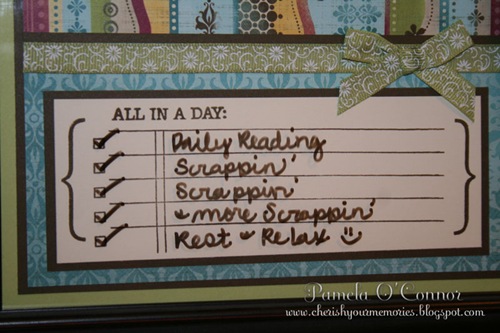 ALL IN A DAY:
Daily Reading
Scrappin'
Scrappin'
+ more Scrappin'
Rest + Relax
Pamela O'Connor
www.cherishyourmemories.blogspot.com